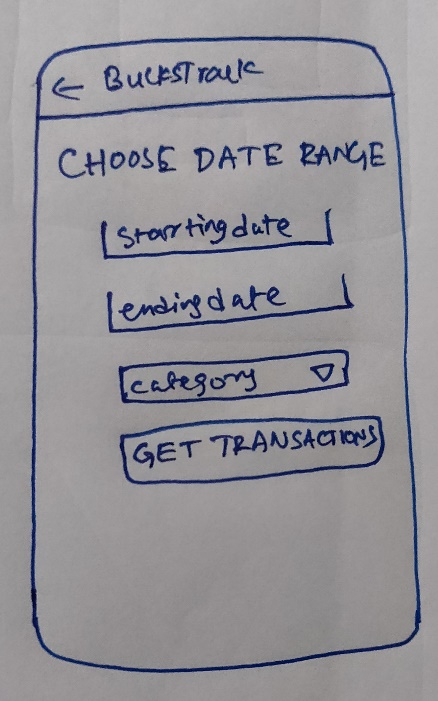 ← BUCKSTRACK
CHOOSE DATE RANGE
starting date
ending date
category ▽
GET TRANSACTIONS